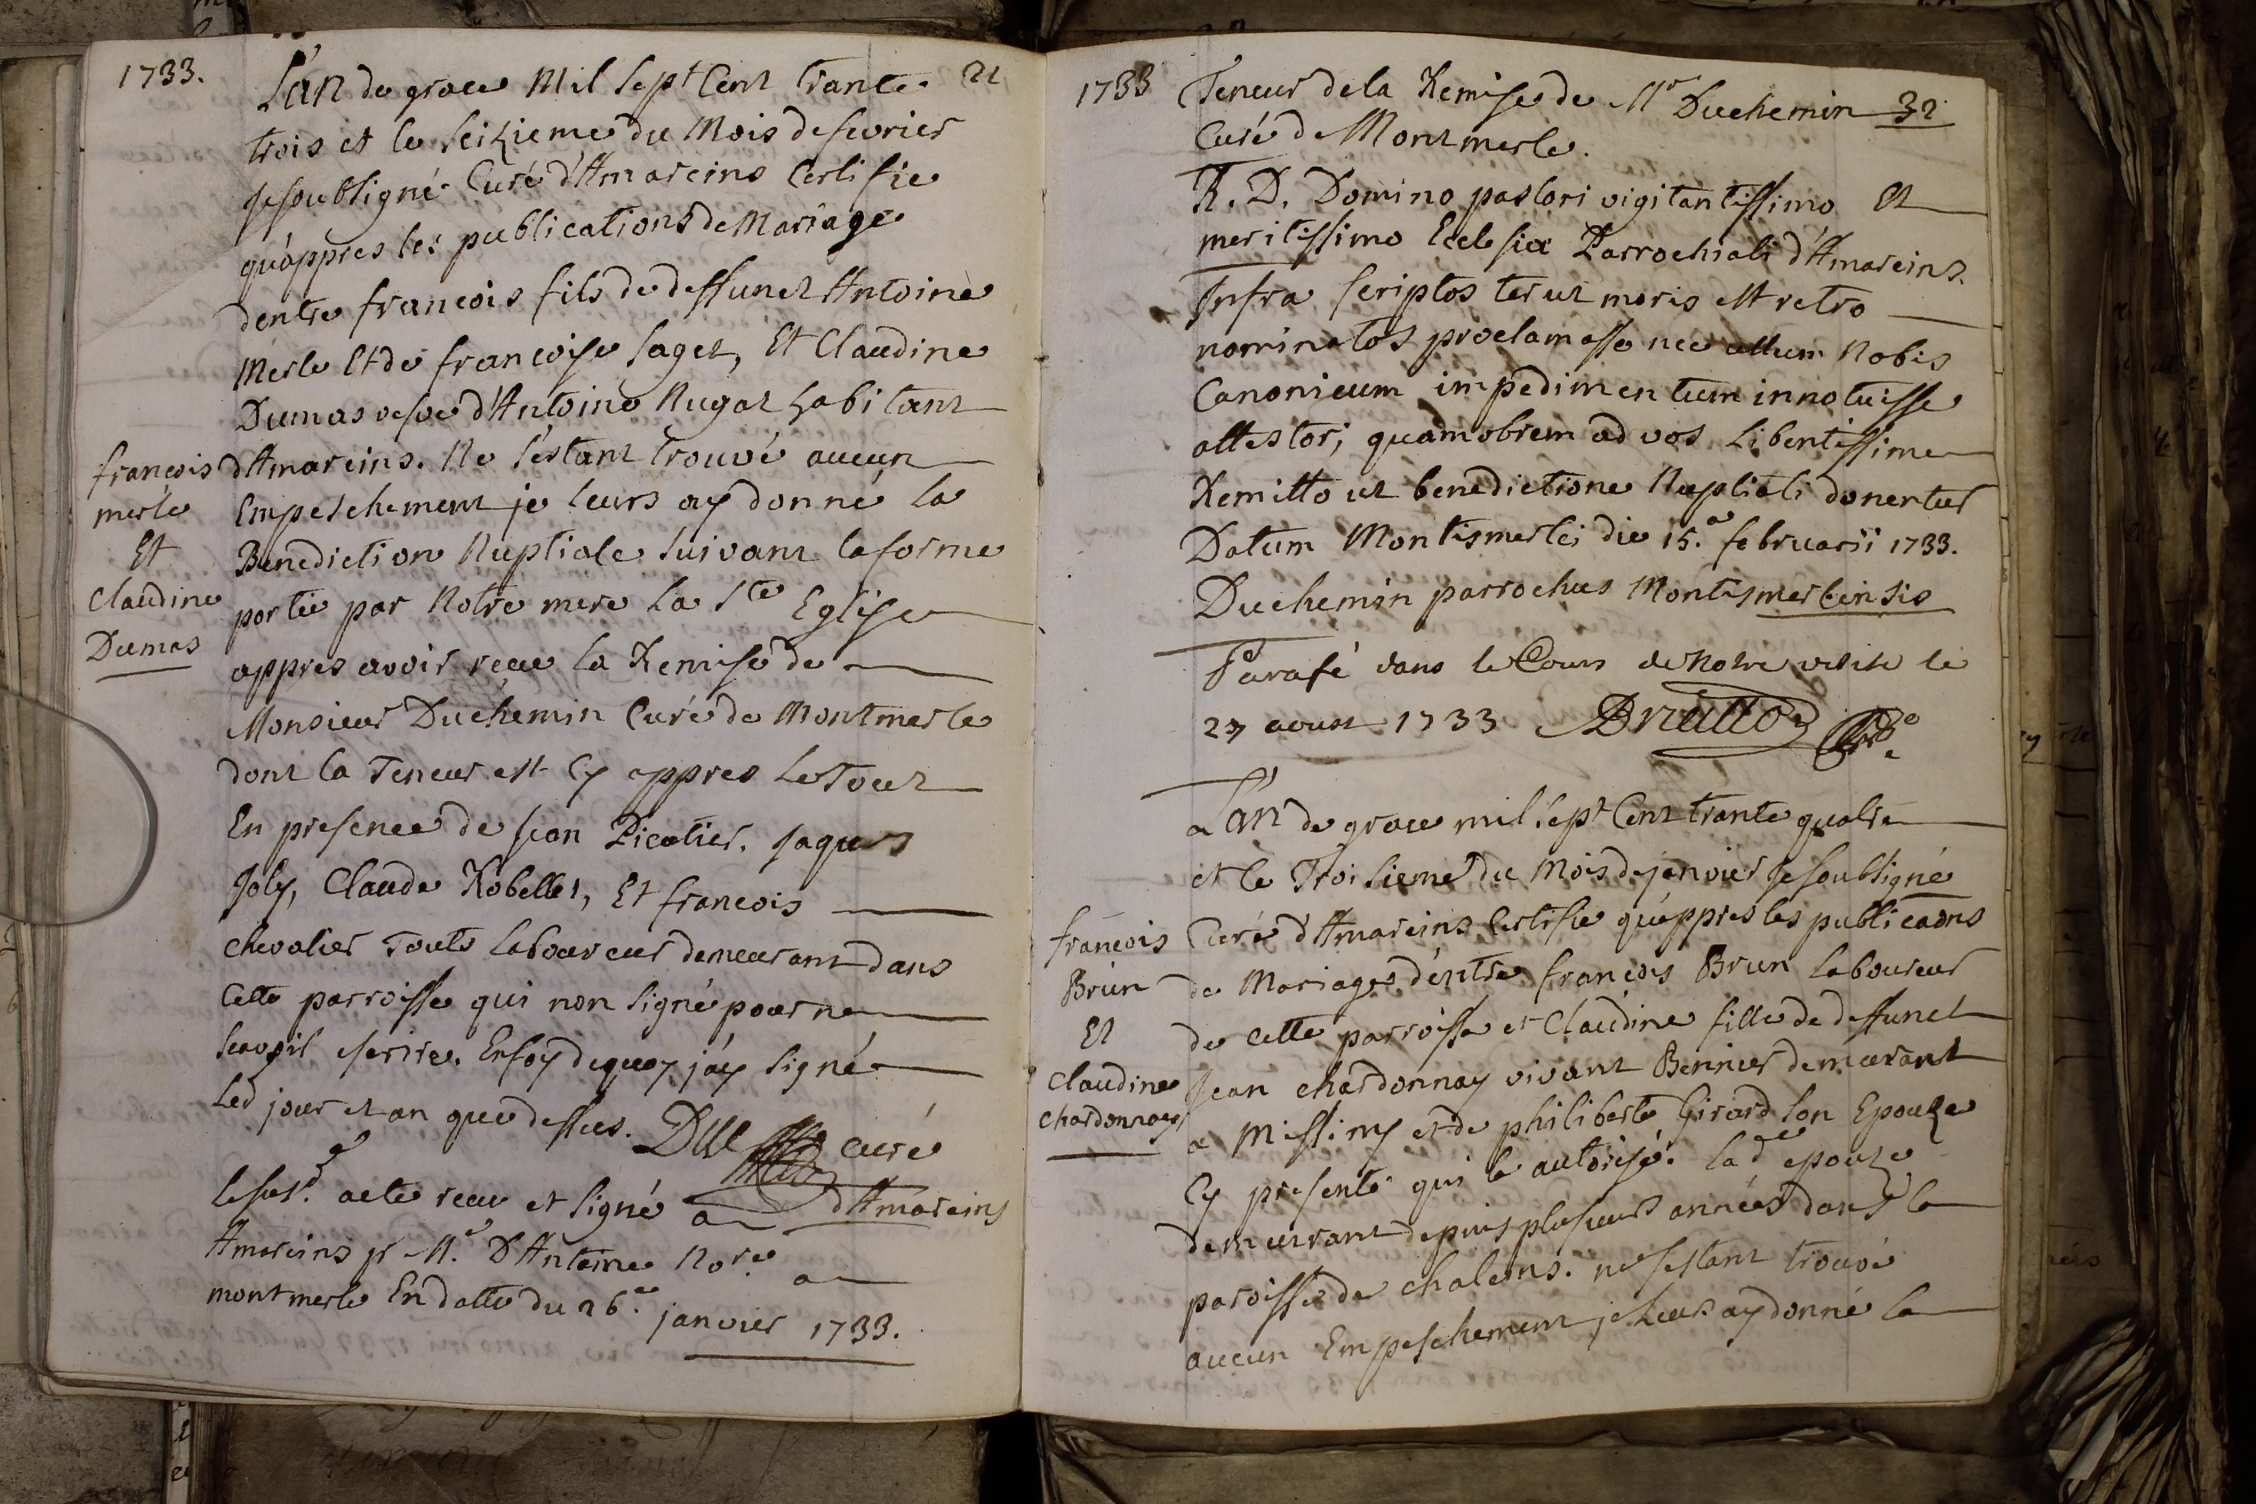 1733.
21
L'an de grace Mil sept Cent trante
trois et le seizieme du Mois de feurier
Je soubsigné Curé d'Amareins Certifie
qu'appres les publications de Mariage
dentre francois fils de deffunct Antoine
Merle Et de francoise Saget, Et Claudine
Dumas vefve d'Antoine Nugat habitant
d'Amareins. Ne s'estant trouvé aucun
Empeschement je leurs ay donné la
Benediction Nuptiale suivant la forme
portée par Notre mere La Ste Eglise
appres avoir reçeu la Remise de
Monsieur Duchemin Curé de Montmerle
dont la Teneur est Cy appres Le Tout
En presence de Jean Picatier. Jaques
Joly, Claude Robellet, Et francois
chevalier Touts Laboureur demeurant dans
Cette parroisse qui non signé pour ne
scavoir escrire. En foy de quoy j'ay signé
Led jour et an que dessus.
curé
d'Amareins
francois
merle
Et
Claudine
Dumas
le susd. acte receu et signé a
Amareins pr Me. D'Antoine Nore a
montmerle En datte du 26e janvier 1733.
1733
32
Teneur de la Remise de Mr Duchemin
Curé de Montmerle.
R. D. Domino pastori vigitantissimo Et
meritissimo Eclesiæ Parrochiali d'Amareins.
Infra scriptos ter ut moris est retro
nominatos proclamasse nec ullum Nobis
Canonicum impedimentum innotuisse
attestor; quamobrem ad vos Libentissime
Remitto ut benedictione Nuptiali donentur
Datum Montismerlei die 15.a februarii 1733.
Duchemin parrochus Montismerlensis
Parafé dans le Cours de Notre visite le
27 aoust 1733
L'an de grace mil sept Cent trante quatre
et le Troisieme du Mois de janvier Je soubsigné
Curé d'Amareins Certifie qu'appres les publicaons
de Mariages d'entre francois Brun laboureur
de cette parroisse et Claudine fille de deffunct
Jean chardonnay vivant Bennier demeurant
a Missimy et de philiberte Girard son Epouze
Cy presente qui le autorisé. lade epouze
demeurant depuis plusieurs années dans la
paroisse de chaleins. ne sestant trouvé
aucun Empeschement je Leurs ay donné la
francois
Brun
Et
Claudine
chardonnay